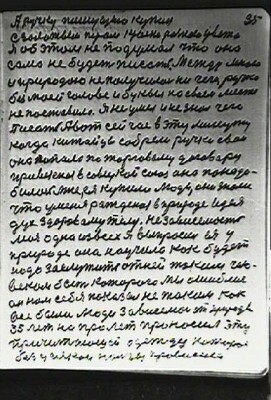 А ручку пишущую купил 35
с золотым пером
Я об этом не подумал что она
само не будет писать. Между мною
и природою не получилось ни чего, ручка
без моей головы и буквы на своем месте
не поставила. Я не умел и не знал чего
писать. А вот сейчас в эту минуту
когда китайцы собрали ручку свою
она попала по торговому договору
привезена в советский союз она понадо-
билась же я купил. Люди они знали
что у меня рождена в природе идея
дух здоровому телу. Независимость
моя одна из всех. Я выпросил её у
природе она научила как будет
надо заслужить от ней таким чело-
веком быть которого мы
он нам себя показал не таким как
все были люди зависимы от природы
35 лет на пролет проносил эту
одежду которая